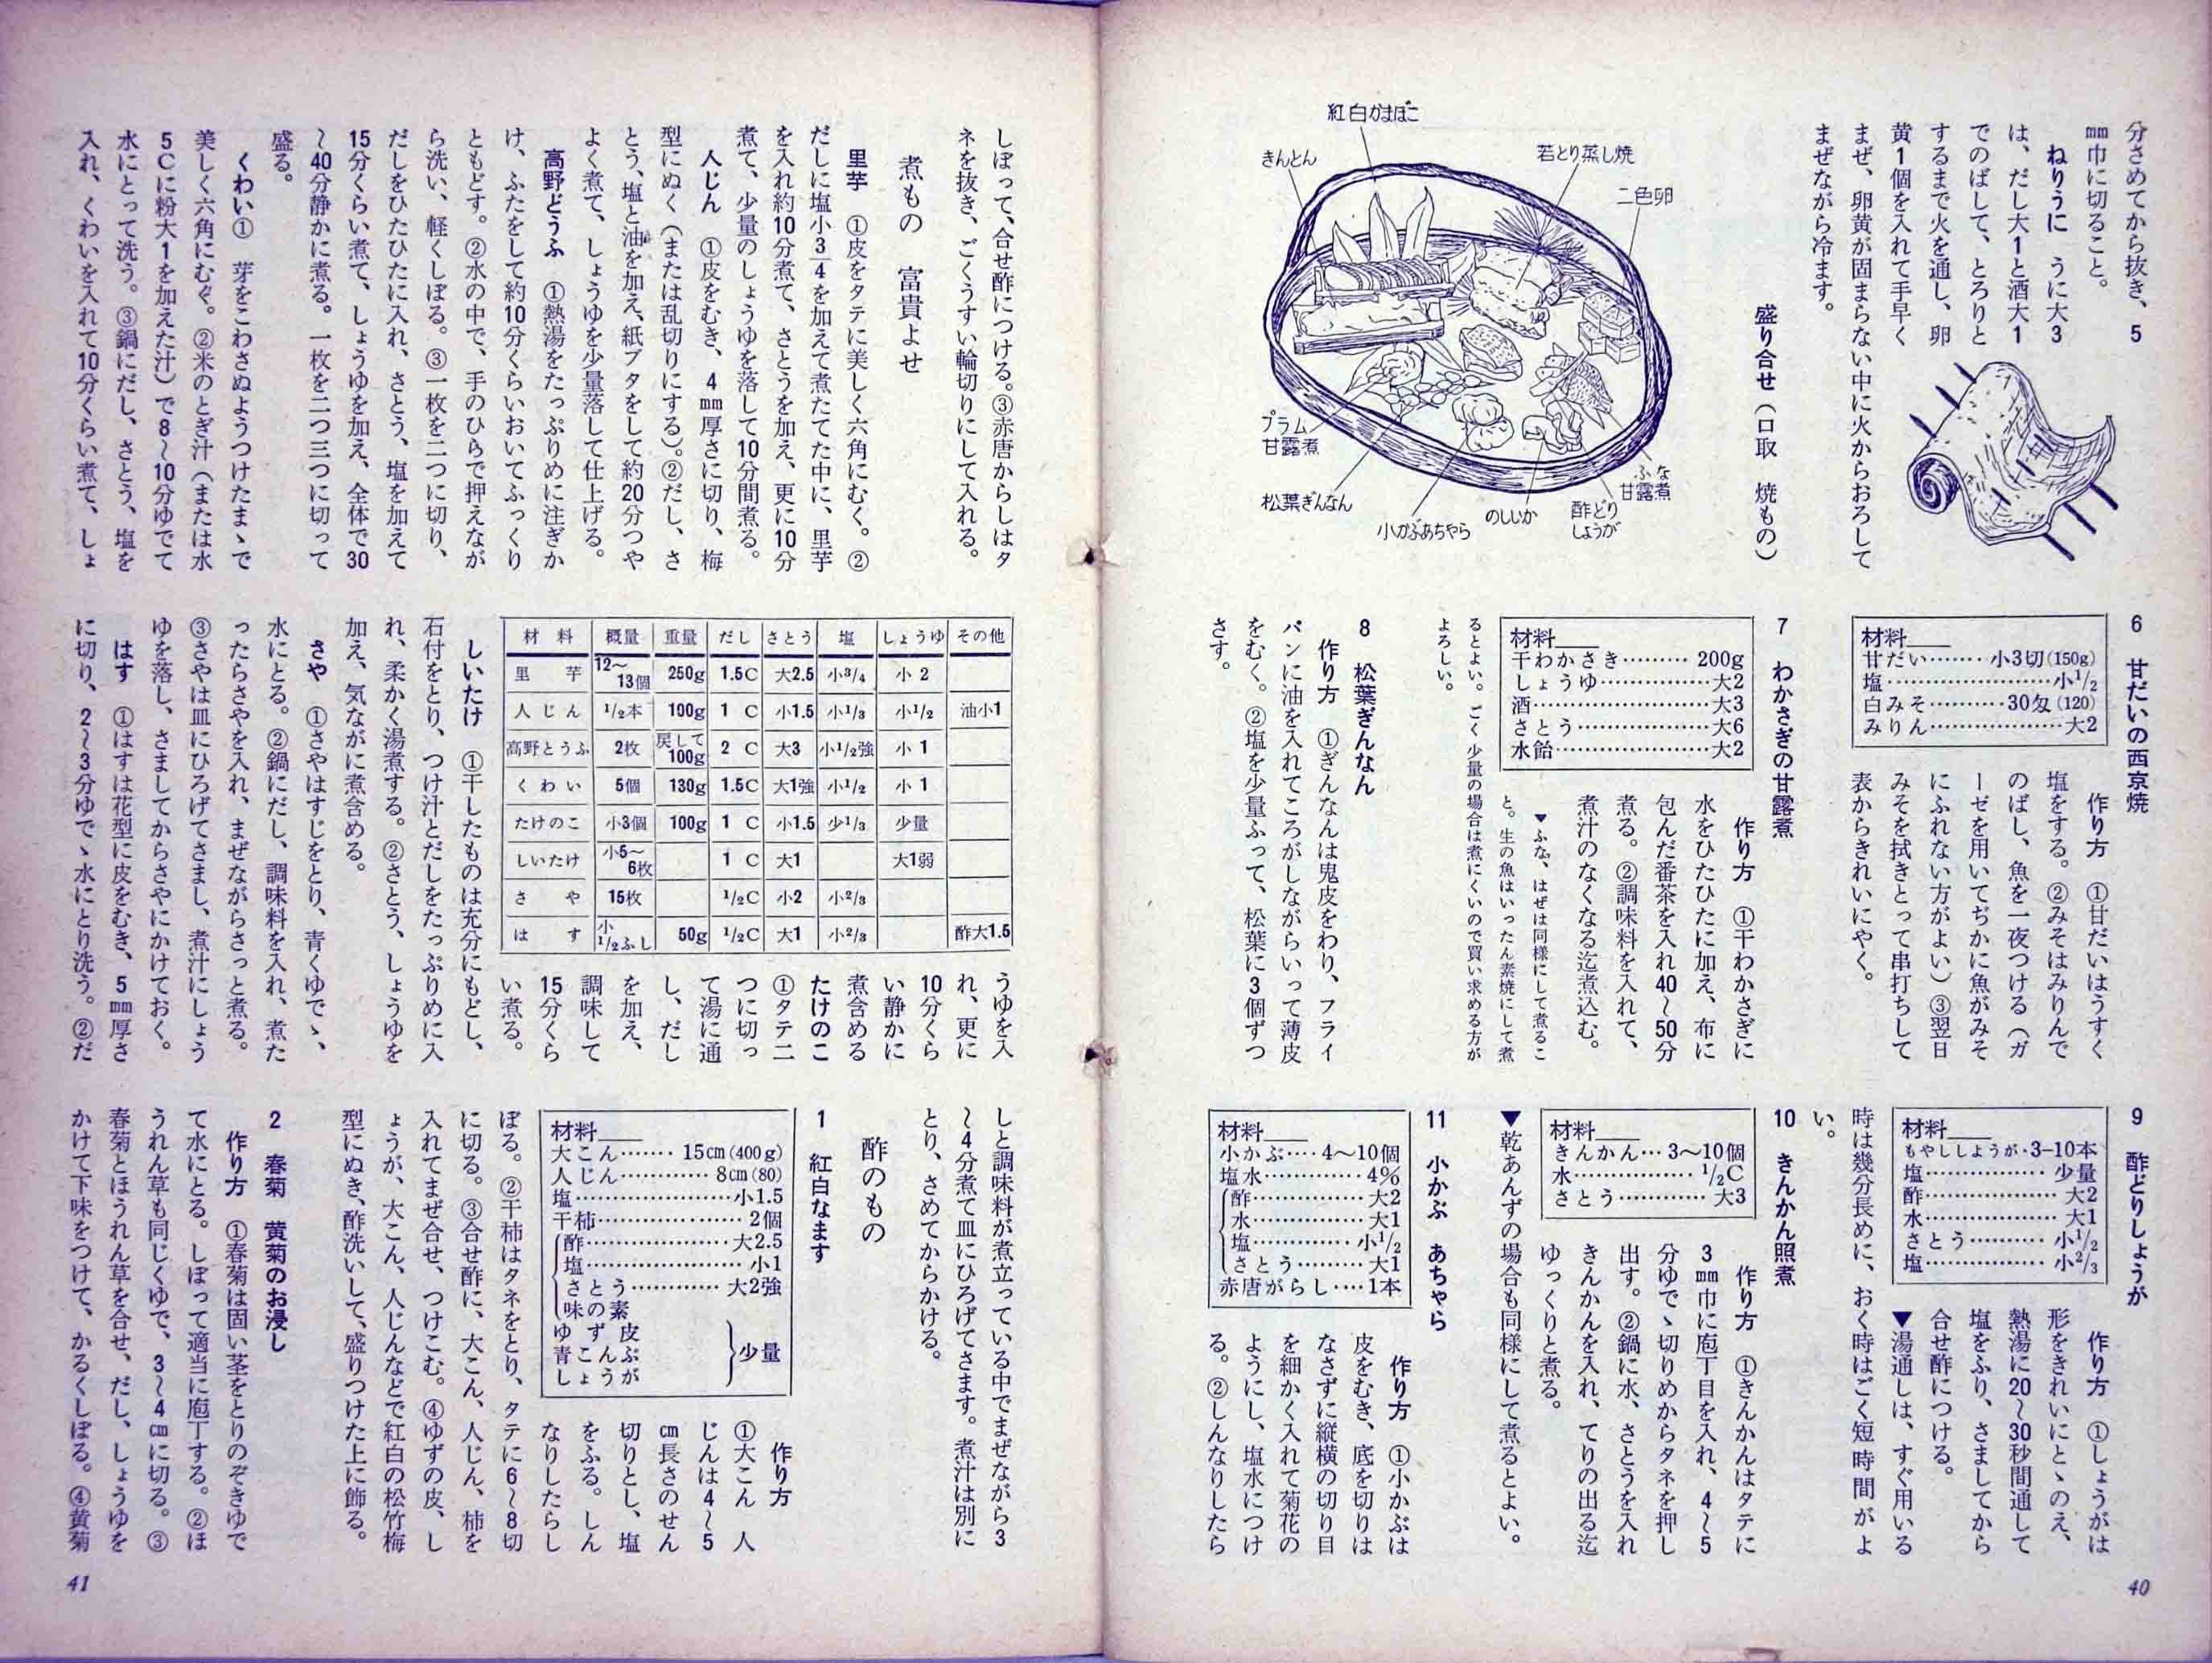 分さめてから抜き、5
mm巾に切ること。
ねりうに　うに大3
は、だし大1と酒大1
でのばして、とろりと
するまで火を通し、卵
黄1個を入れて手早く
まぜ、卵黄が固まらない中に火からおろして
まぜながら冷ます。
盛り合せ（口取　焼もの）
紅白かまぼこ
きんとん
若とり蒸し焼
二色卵
プラム
甘露煮
松葉ぎんなん
小かぶあちやら
のしいか
酢どり
しょうが
ふな
甘露煮
6　甘だいの西京焼
材料
甘だい……小3切(150g)
塩……小1/2
白みそ……30匁(120)
みりん……大2
作り方　①甘だいはうすく
塩をする。②みそはみりんで
のばし、魚を一夜つける（ガ
ーゼを用いてぢかに魚がみそ
にふれない方がよい）③翌日
みそを拭きとって串打ちして
表からきれいにやく。
7　わかさぎの甘露煮
材料
干わかさき……200g
しょうゆ……大2
酒……大3
さとう……大6
水飴……大2
作り方　①干わかさぎに
水をひたひたに加え、布に
包んだ番茶を入れ40〜50分
煮る。②調味料を入れて、
煮汁のなくなる迄煮込む。
▼ふな、はぜは同様にして煮るこ
と。生の魚はいったん素焼にして煮
るとよい。ごく少量の場合は煮にくいので買い求める方が
よろしい。
8　松葉ぎんなん
作り方　①ぎんなんは鬼皮をわり、フライ
パンに油を入れてころがしながらいって薄皮
をむく。②塩を少量ふって、松葉に3個ずつ
さす。
9　酢どりしょうが
材料
もやししょうが・3-10本
塩……少量
酢……大2
水……大1
さとう……小1/2
塩……小2/3
作り方　①しょうがは
形をきれいにとゝのえ、
熱湯に20〜30秒間通して
塩をふり、さましてから
合せ酢につける。
▼湯通しは、すぐ用いる
時は幾分長めに、おく時はごく短時間がよ
い。
10　きんかん照煮
材料
きんかん…3〜10個
水……1/2C
さとう……大3
作り方　①きんかんはタテに
3mm巾に庖丁目を入れ、4〜5
分ゆでゝ切りめからタネを押し
出す。②鍋に水、さとうを入れ
きんかんを入れ、てりの出る迄
ゆっくりと煮る。
▼乾あんずの場合も同様にして煮るとよい。
11　小かぶ　あちゃら
材料
小かぶ……4〜10個
塩水……4%
酢……大2
水……大1
塩……小1/2
さとう……大1
赤唐がらし……1本
作り方　①小かぶは
皮をむき、底を切りは
なさずに縦横の切り目
を細かく入れて菊花の
ようにし、塩水につけ
る。②しんなりしたら
40
しぼって、合せ酢につける。③赤唐からしはタ
ネを抜き、ごくうすい輪切りにして入れる。
煮もの　富貴よせ
里芋　①皮をタテに美しく六角にむく。②
だしに塩小3/4を加えて煮たてた中に、里芋
を入れ約10分煮て、さとうを加え、更に10分
煮て、少量のしょうゆを落して10分間煮る。
人じん　①皮をむき、4mm厚さに切り、梅
型にぬく（または乱切りにする）。②だし、さ
とう、塩と油を加え、紙ブタをして約20分つや
よく煮て、しょうゆを少量落して仕上げる。
高野どうふ　①熱湯をたっぷりめに注ぎか
け、ふたをして約10分くらいおいてふっくり
ともどす。②水の中で、手のひらで押えなが
ら洗い、軽くしぼる。③一枚を二つに切り、
だしをひたひたに入れ、さとう、塩を加えて
15分くらい煮て、しょうゆを加え、全体で30
〜40分静かに煮る。一枚を二つ三つに切って
盛る。
くわい①　芽をこわさぬようつけたまゝで
美しく六角にむぐ。②米のとぎ汁（または水
5Cに粉大1を加えた汁）で8〜10分ゆでて
水にとって洗う。③鍋にだし、さとう、塩を
入れ、くわいを入れて10分くらい煮て、しょ
材料　概量　重量　だし　さとう　塩　しょうゆ　その他
里芋　12〜13個　250g　1.5C　大2.5　小3/4　小2
人じん　1/2本　100g　1C　小1.5　小1/3　小1/2　油小1
高野とうふ　2枚　戻して100g　2C　大3　小1/2強　小1
くわい　5個　130g　1.5C　大1強　小1/2　小1
たけのこ　小3個　100g　1C　小1.5　少1/3　少量
しいたけ　小5〜6枚　1C　大1　大1弱
さや　15枚　1/2C　小2　小2/3
はす　小1/2ふし　50g　1/2C　大1　小2/3　酢大1.5
うゆを入
れ、更に
10分くら
い静かに
煮含める
たけのこ
①タテ二
つに切っ
て湯に通
し、だし
を加え、
調味して
15分くら
い煮る。
しいたけ　①干したものは充分にもどし、
石付をとり、つけ汁とだしをたっぷりめに入
れ、柔かく湯煮する。②さとう、しょうゆを
加え、気ながに煮含める。
さや　①さやはすじをとり、青くゆでゝ、
水にとる。②鍋にだし、調味料を入れ、煮た
ったらさやを入れ、まぜながらさっと煮る。
③さやは皿にひろげてさまし、煮汁にしょう
ゆを落し、さましてからさやにかけておく。
はす　①はすは花型に皮をむき、5mm厚さ
に切り、2〜3分ゆでゝ水にとり洗う。②だ
しと調味料が煮立っている中でまぜながら3
〜4分煮て皿にひろげてさます。煮汁は別に
とり、さめてからかける。
酢のもの
1　紅白なます
材料
大こん……15cm(400g)
人じん……8cm(80)
塩……小1.5
干柿……2個
酢……大2.5
塩……小1
さとう……大2強
味の素
ゆず皮
青こんぶ
しょうが
少量
作り方
①大こん　人
じんは4〜5
cm長さのせん
切りとし、塩
をふる。しん
なりしたらし
ぼる。②干柿はタネをとり、タテに6〜8切
に切る。③合せ酢に、大こん、人じん、柿を
入れてまぜ合せ、つけこむ。④ゆずの皮、し
ょうが、大こん、人じんなどで紅白の松竹梅
型にぬき、酢洗いして、盛りつけた上に飾る。
2　春菊　黄菊のお浸し
作り方　①春菊は固い茎をとりのぞきゆで
て水にとる。しぼって適当に庖丁する。②ほ
うれん草も同じくゆで、3〜4cmに切る。③
春菊とほうれん草を合せ、だし、しょうゆを
かけて下味をつけて、かるくしぼる。④黄菊
41